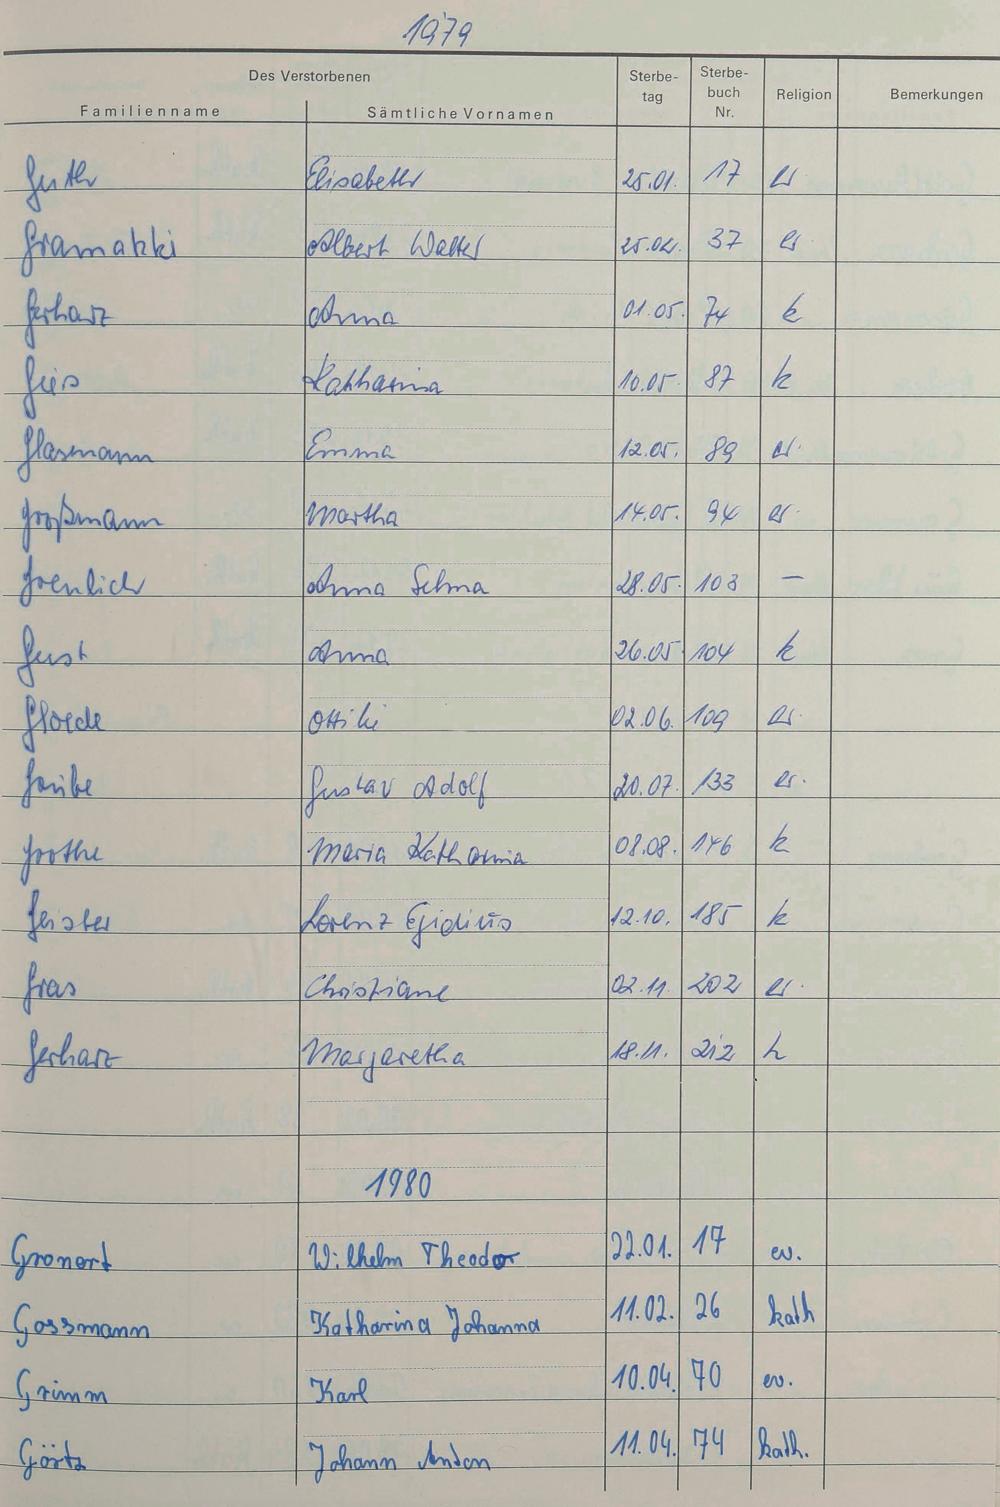 1979
Des Verstorbenen Sterbe- Sterbe- Religion Bemerkungen
Familienname Sämtliche Vornamen tag buch
Nr.
Guth Elisabeth 25.01. 17 ev
Gramatzki Albert Walter 25.02. 37 ev.
Gerharz Anna 01.05. 74 k
Gies Katharina 10.05. 87 k
Glasmann Emma 12.05. 89 ev.
Großmann Martha 14.05. 94 ev.
Anna Selma 28.05. 103 —
Anna 26.05 104 k
Gloede Ottilie 02.06. 109 ev.
Gustav Adolf 20.07. 133 ev.
Grothe Maria Katharina 08.08. 146 k
Geister Lorenz Egidius 12.10. 185 k
Gras Christiane 02.11. 202 ev.
Gerharz Margaretha 18.11. 212 k
1980
Gronert Wilhelm Theodor 22.01. 17 ev.
Gossmann Katharina Johanna 11.02. 26 kath
Grimm Karl 10.04. 70 ev.
Görtz Johann Anton 11.04. 74 kath.